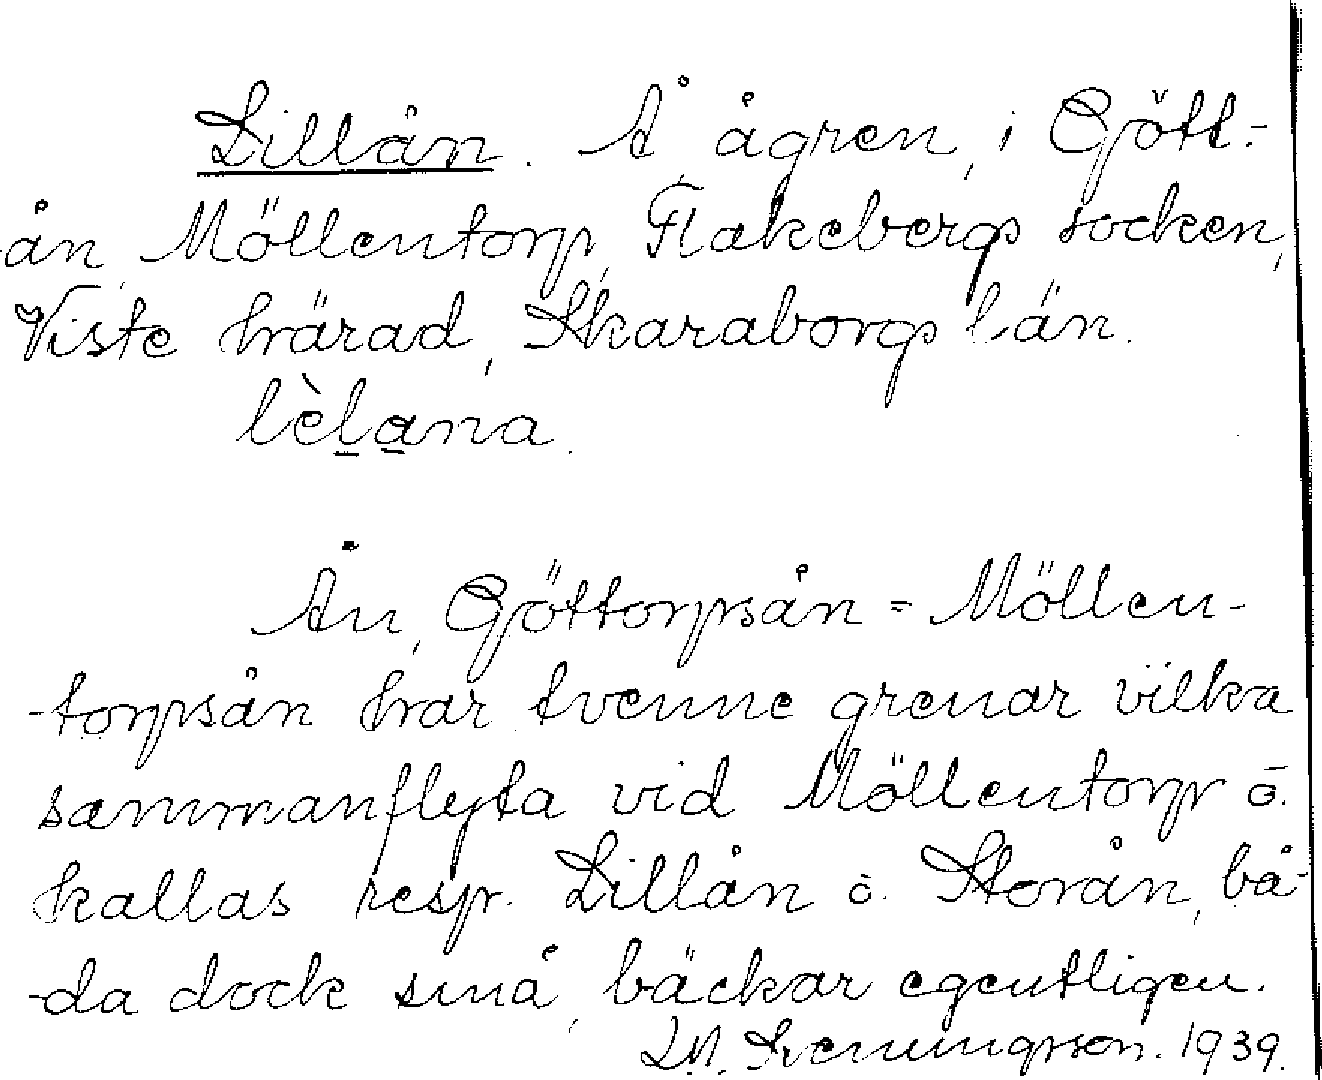 Lillån. Å, ågren, i Gött-
ån, Möllentorp, Flakebergs socken,
Viste härad, Skaraborgs län.
lèlana.
Ån, Göttorpsån = Möllen-
-torpsån har tvenne grenar vilka
sammanflyta vid Möllentorp o.
kallas resp. Lillån o. Storån, bå-
-da dock små, bäckar egentligen.
Svenungsson. 1939.